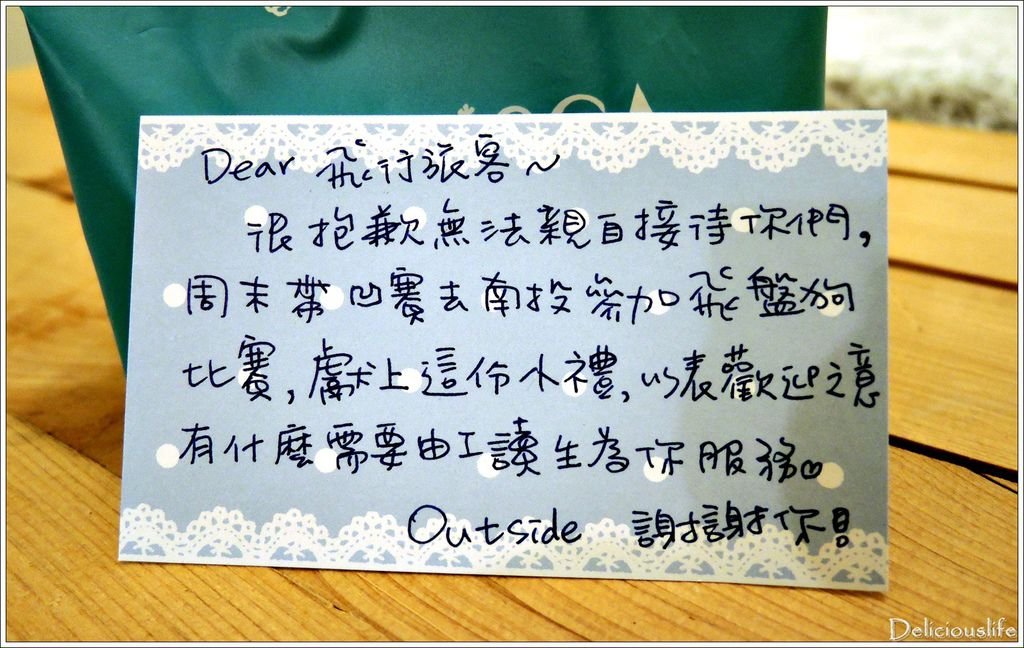 Dear 飛行旅客~
很抱歉無法親自接待你們,
周末帶凹賽去南投參加飛盤狗
比賽,獻上這份小禮,以表歡迎之意
有什麼需要由工讀生為你服務♡
Outside 謝謝你!
Deliciouslife